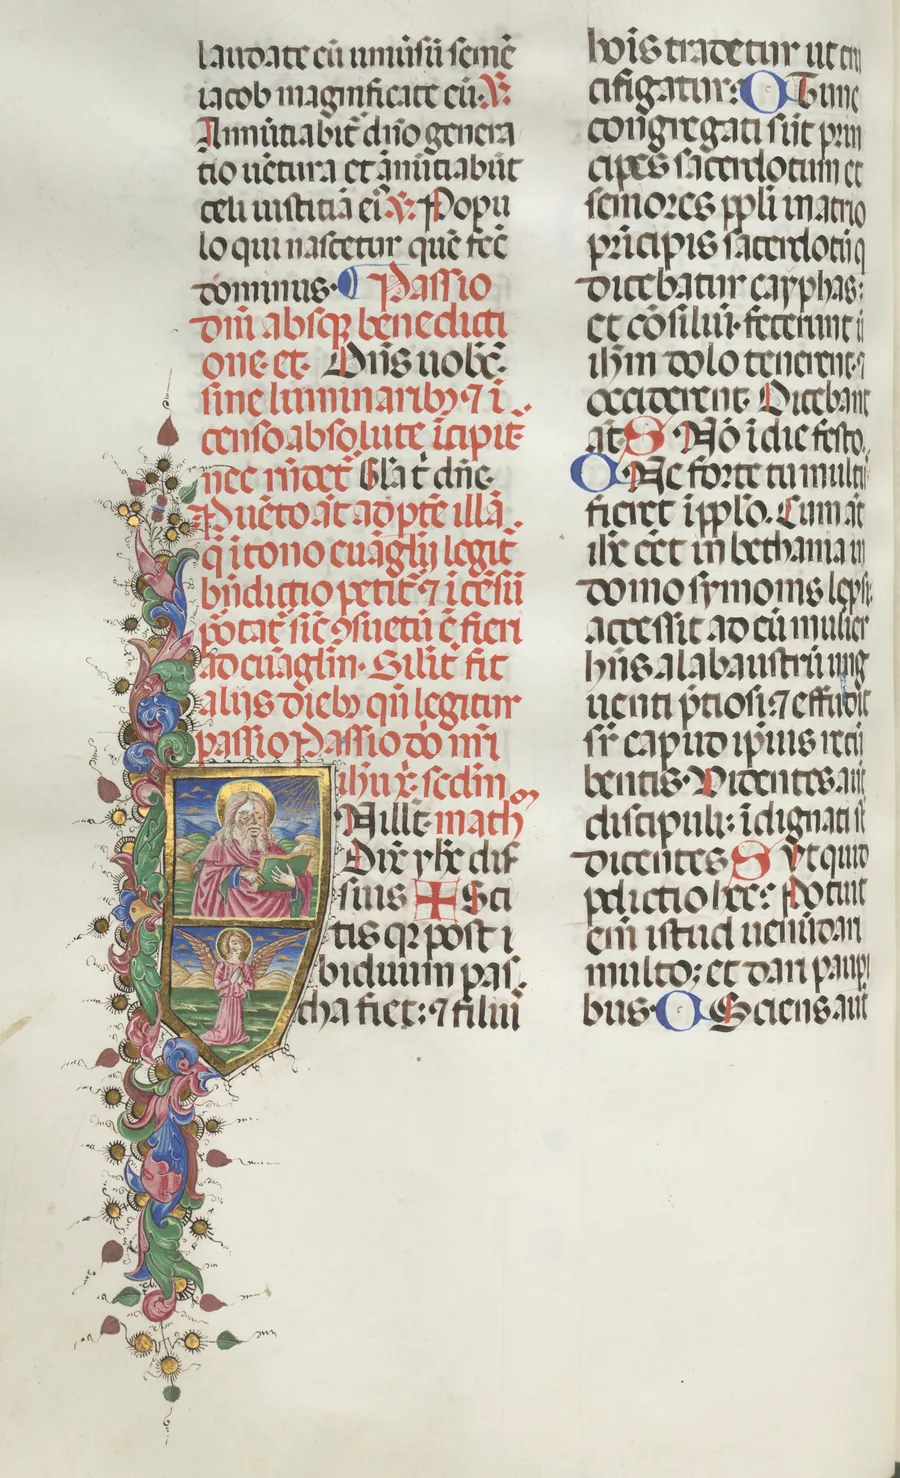 laudate eū uniūsū semē
iacob magnificate eū. ℣.
Annūtiabit̄ dn̄o genera
tio uētura et ānūtiabūt
celi iustitiā ei᷒ ℣. Popu
lo qui nascetur quē fec̄
dominus. ¶ Passio
dn̄i absq̨ benedicti
one. et. Dn̄s uobc̄.
sine luminarib; ⁊ ī..
censo absolute īcipit̄
nec rn̄det̄ Gl̄a t̄ dn̄e.
Puēto āt ad ptē illā.
q̄ ī tono euāglij legit̄
bn̄dictio petit̄ ⁊ īcēsū
portat̄ sic̄ ꝯsuetū ē fieri
ad euāgliū. Silit̄ fit
alijs dieb; qn̄ legitur
passio Passio dn̄i nr̄i
ih̄u xp̄. secdm̄
Nillit. math
Dix̄ yh̄c dis
suis ✠ Sci
tis qꝫ post ī
biduum pas.
cha fiet: ⁊ filiu᷒
hoīs tradetur ut cru
cifigatur: C Tunc
congregati sūt prin
cipes sacerdotum et
seniores ppl̄i in atrio
prīcipis sacerdotū q
dicebatur cayphas:
et cōsiliū. fecerunt ū
ih̄m dolo tenerent ⁊
occiderent. Dicebant
āt S Nō ī die festo.
C Ne forte tumult᷒
fieret ī pplo. Cum āt
ih̄c eēt in bethania in
domo symonis lepsi
accessit ad eū mulier
hn̄s alabaustrū ung
uenti ꝑtiosi. ⁊ effudit
sr̄ caput ipius recū
bentis. Videntes aūt
discipuli: īdignati st̄
dicentes S Vt quid
pdictio hec: Potuit
eīn istud uenūdari
multo; et dari paupi
bus. C Sciens aūt